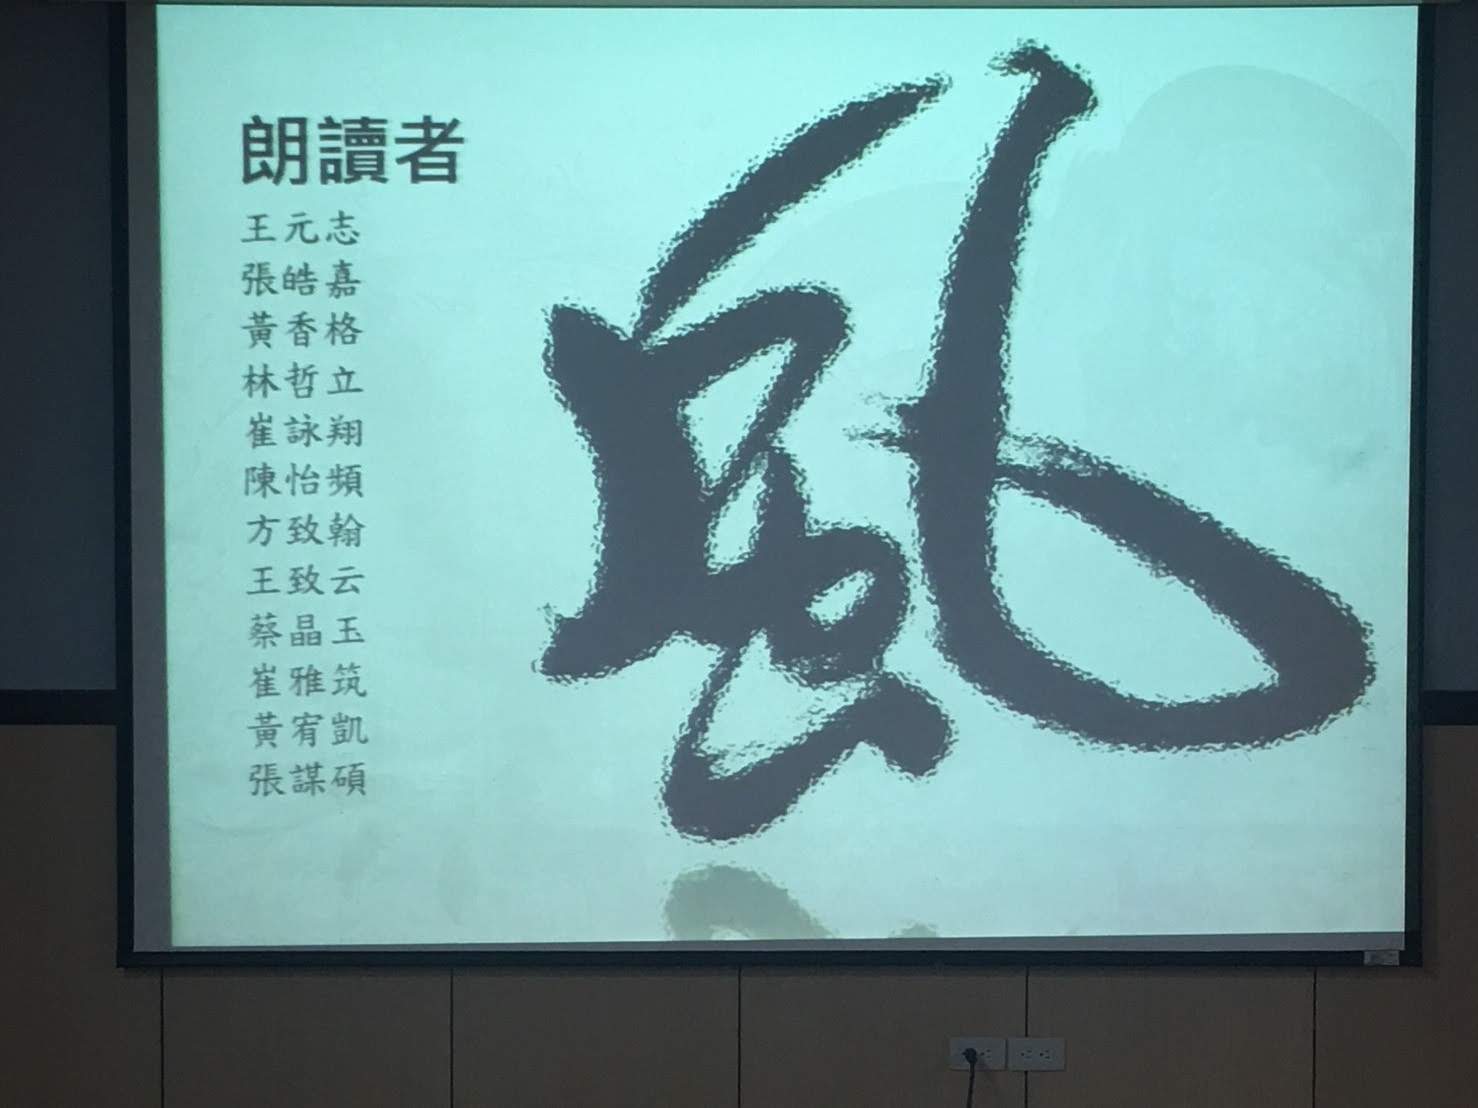 朗讀者
王元志
張皓嘉
黃香格
林哲立
崔詠翔
陳怡頻
方致翰
王致云
蔡晶玉
崔雅筑
黃宥凱
張謀碩
風